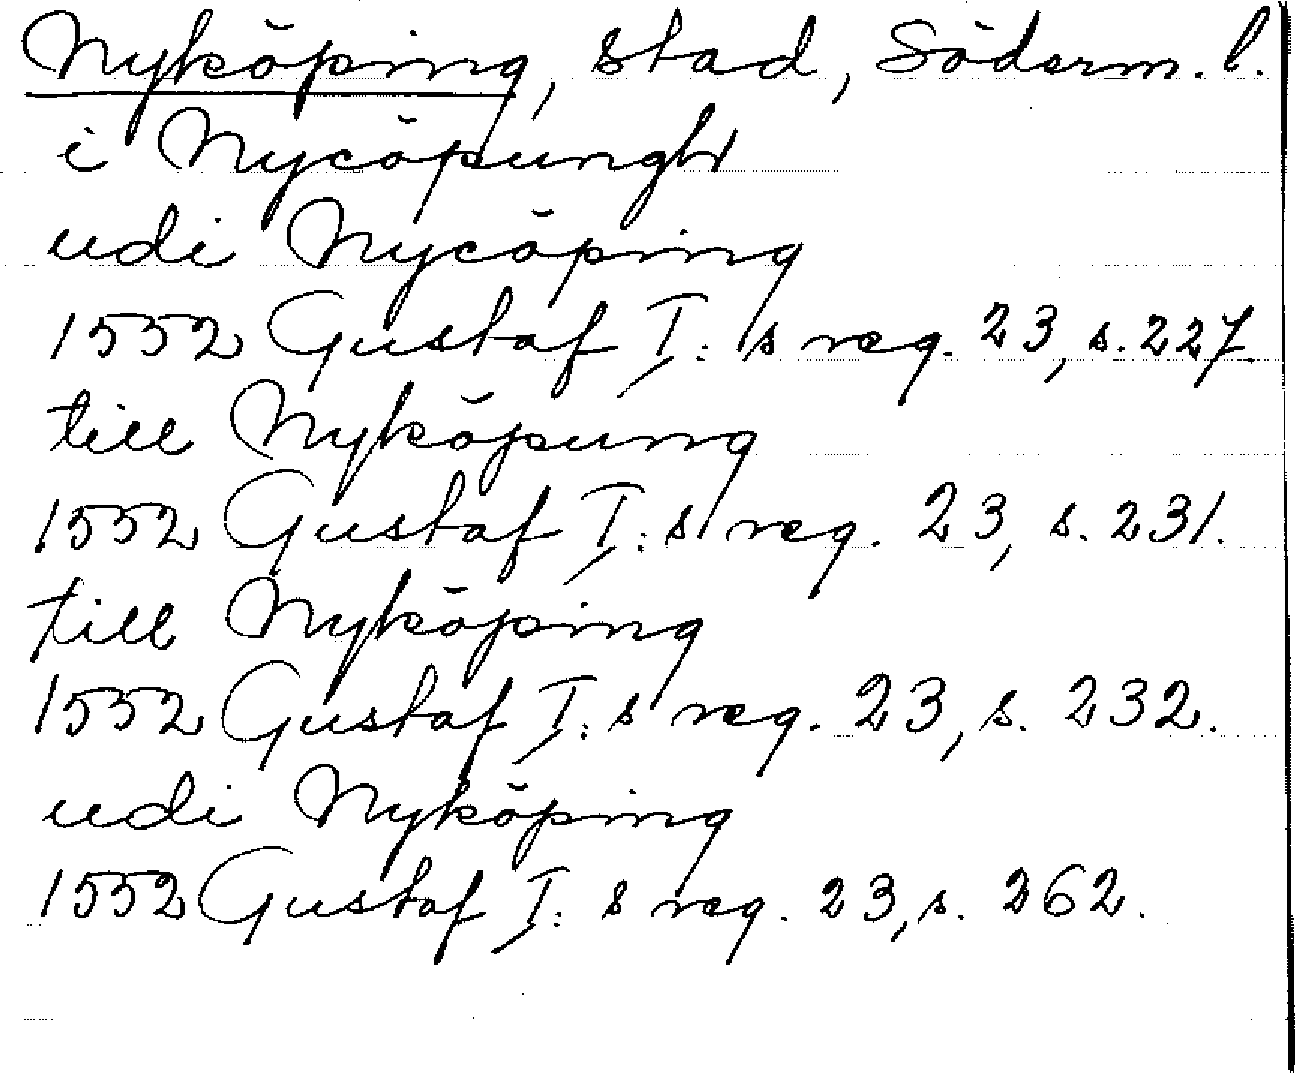 Nyköping, stad, Söderm. l.
i Nycöpungh
udi Nycöping
1552 Gustaf I: s reg. 23, s. 227.
till Nyköpung
1552 Gustaf I: s reg. 23, s. 231.
till Nyköping
1552 Gustaf I: s reg. 23, s. 232.
udi Nyköping
1552 Gustaf I: s reg. 23, s. 262.